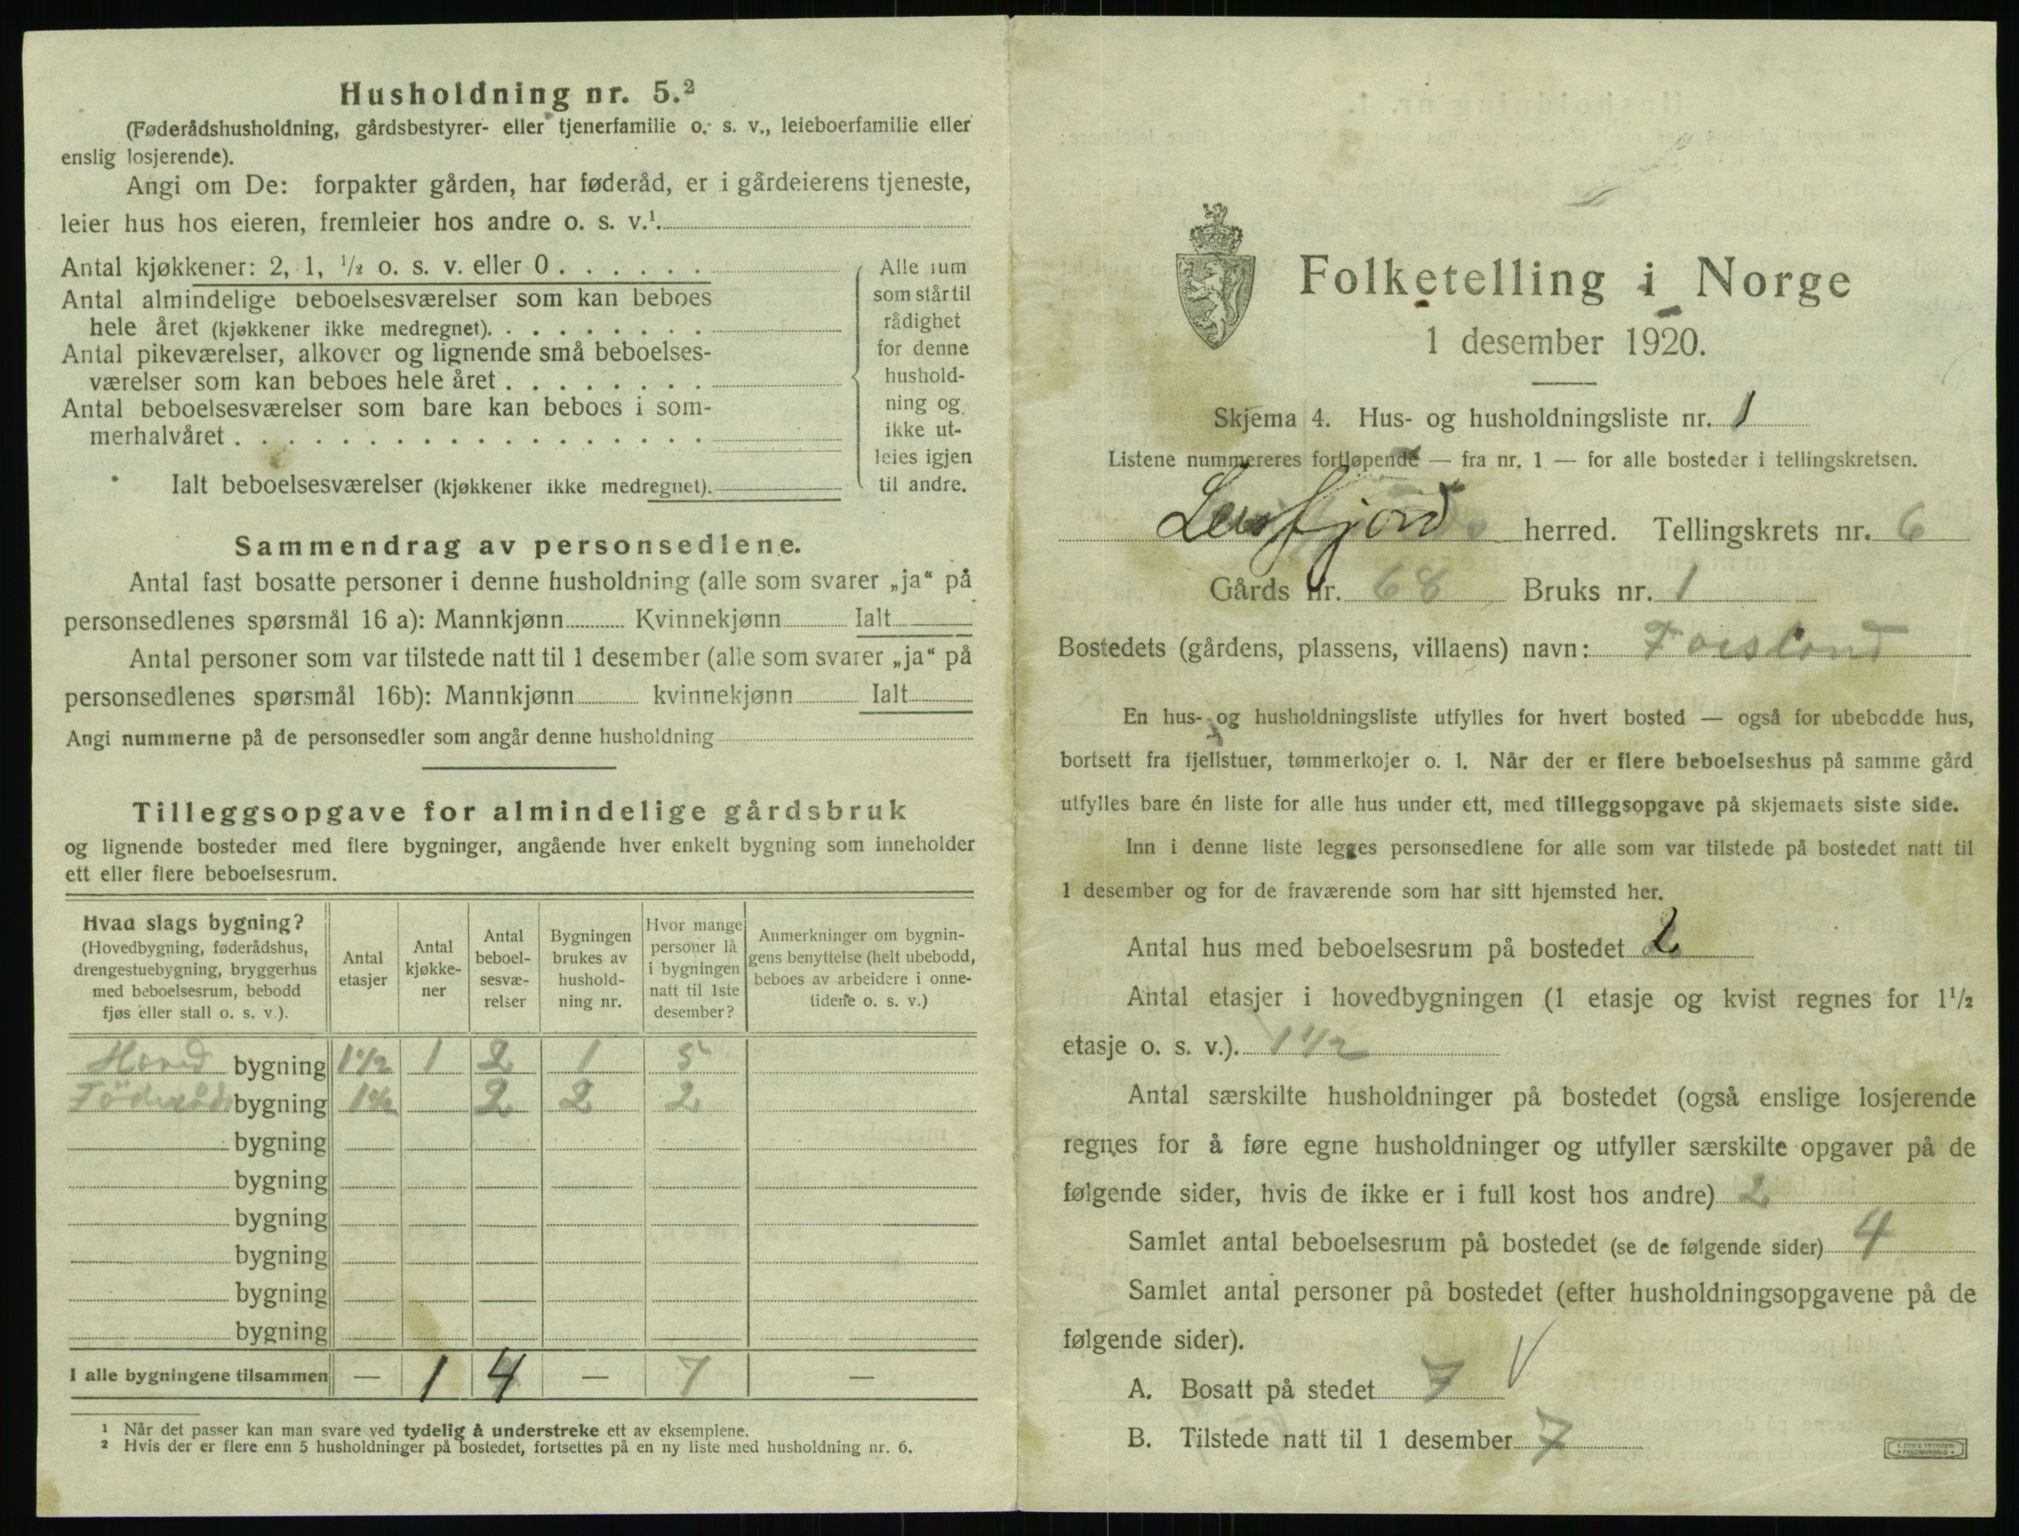 Husholdning nr. 5.²
(Føderådshusholdning, gårdsbestyrer- eller tjenerfamilie o. s. v., leieboerfamilie eller
enslig losjerende).
Angi om De: forpakter gården, har føderåd, er i gårdeierens tjeneste,
leier hus hos eieren, fremleier hos andre o. s. v.¹
Antal kjøkkener: 2, 1, ½ o. s. v. eller 0
Antal almindelige beboelsesværelser som kan beboes
hele året (kjøkkener ikke medregnet).
Antal pikeværelser, alkover og lignende små beboelses-
værelser som kan beboes hele året
Antal beboelsesværelser som bare kan beboes i som-
merhalvåret
Ialt beboelsesværelser (kjøkkener ikke medregnet).
Alle rum
som står til
rådighet
for denne
hushold-
ning og
ikke ut-
leies igjen
til andre.
Sammendrag av personsedlene.
Antal fast bosatte personer i denne husholdning (alle som svarer „ja“ på
personsedlenes spørsmål 16 a): Mannkjønn Kvinnekjønn Ialt
Antal personer som var tilstede natt til 1 desember (alle som svarer „ja“ på
personsedlenes spørsmål 16b): Mannkjønn kvinnekjønn Ialt
Angi nummerne på de personsedler som angår denne husholdning
Tilleggsopgave for almindelige gårdsbruk
og lignende bosteder med flere bygninger, angående hver enkelt bygning som inneholder
ett eller flere beboelsesrum.
Hvad slags bygning?
(Hovedbygning, føderådshus,
drengestuebygning, bryggerhus
med beboelsesrum, bebodd
fjøs eller stall o. s. v.).
Antal
etasjer
Antal
kjøkke-
ner
Antal
beboel-
sesvæ-
relser
Bygningen
brukes av
hushold-
ning nr.
Hvor mange
personer lå
i bygningen
natt til 1ste
desember?
Anmerkninger om bygnin-
gens benyttelse (helt ubebodd,
beboes av arbeidere i onne-
tidene o. s. v.)
Hoved bygning 1 1/2 1 2 1 5
Föderåds bygning 1 1/2 2 2 2
bygning
bygning
bygning
bygning
bygning
bygning
I alle bygningene tilsammen — 1 4 — 7 —
¹ Når det passer kan man svare ved tydelig å understreke ett av eksemplene.
² Hvis der er flere enn 5 husholdninger på bostedet, fortsettes på en ny liste med husholdning nr. 6.
Folketelling i Norge
1 desember 1920.
Skjema 4. Hus- og husholdningsliste nr. 1
Listene nummereres fortløpende — fra nr. 1 — for alle bosteder i tellingskretsen.
Leirfjord herred. Tellingskrets nr. 6
Gårds nr. 68 Bruks nr. 1
Bostedets (gårdens, plassens, villaens) navn: Forsland
En hus- og husholdningsliste utfylles for hvert bosted — også for ubebodde hus,
bortsett fra fjellstuer, tømmerkojer o. l. Når der er flere beboelseshus på samme gård
utfylles bare én liste for alle hus under ett, med tilleggsopgave på skjemaets siste side.
Inn i denne liste legges personsedlene for alle som var tilstede på bostedet natt til
1 desember og for de fraværende som har sitt hjemsted her.
Antal hus med beboelsesrum på bostedet 2
Antal etasjer i hovedbygningen (1 etasje og kvist regnes for 1½
etasje o. s. v.). 1 1/2
Antal særskilte husholdninger på bostedet (også enslige losjerende
regnes for å føre egne husholdninger og utfyller særskilte opgaver på de
følgende sider, hvis de ikke er i full kost hos andre) 2
Samlet antal beboelsesrum på bostedet (se de følgende sider) 4
Samlet antal personer på bostedet (efter husholdningsopgavene på de
følgende sider).
A. Bosatt på stedet 7
B. Tilstede natt til 1 desember 7